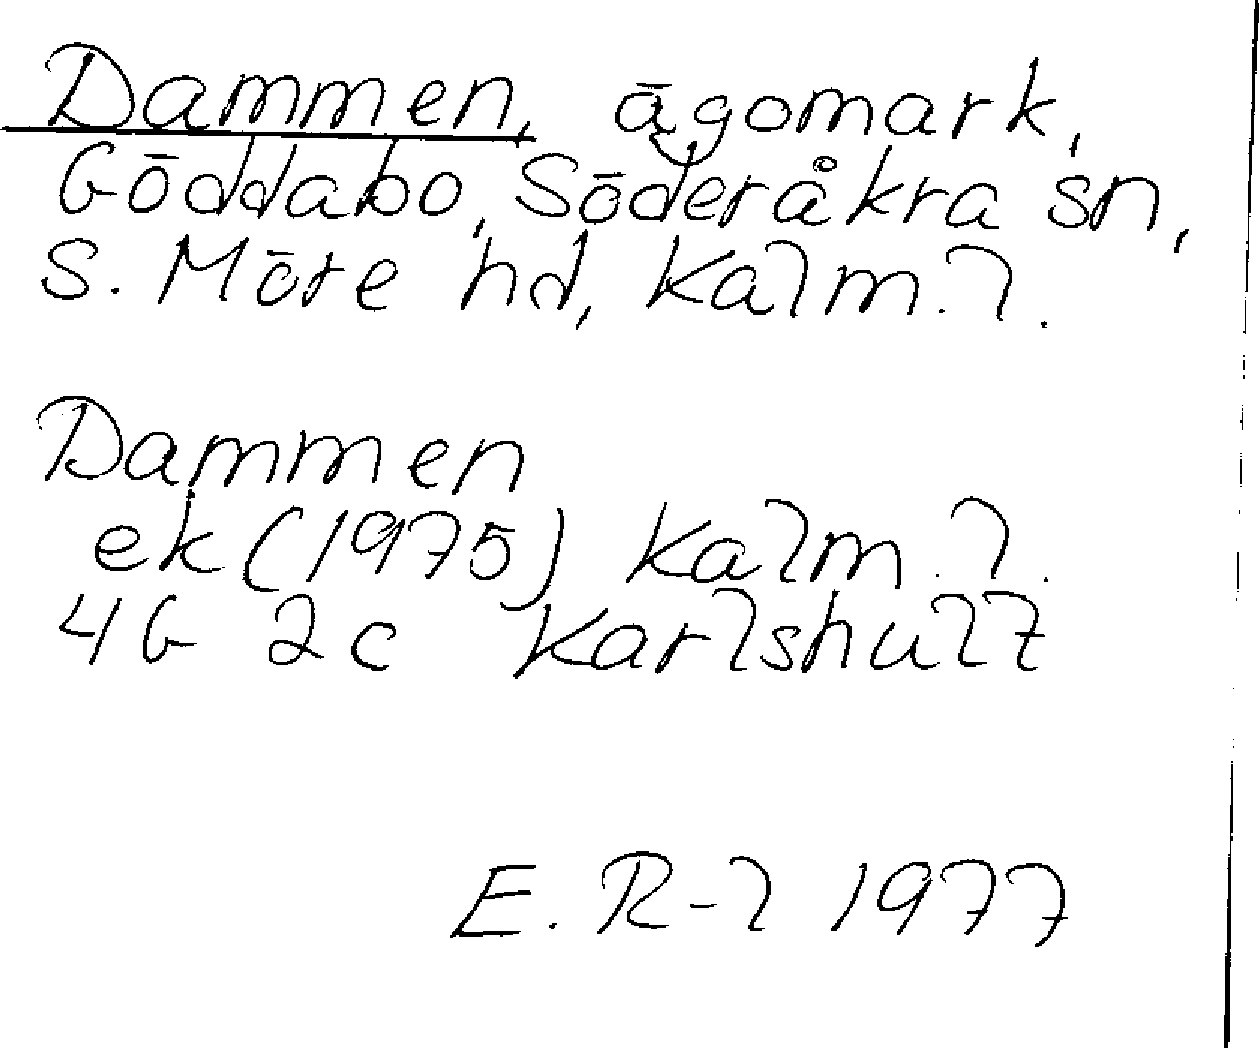 Dammen, ägomark,
Göddabo, Söderåkra sn,
S. Möre hd, Kalm. l.
Dammen
ek (1975) Kalm. l.
4G 2c Karlshult
E. R-l 1977